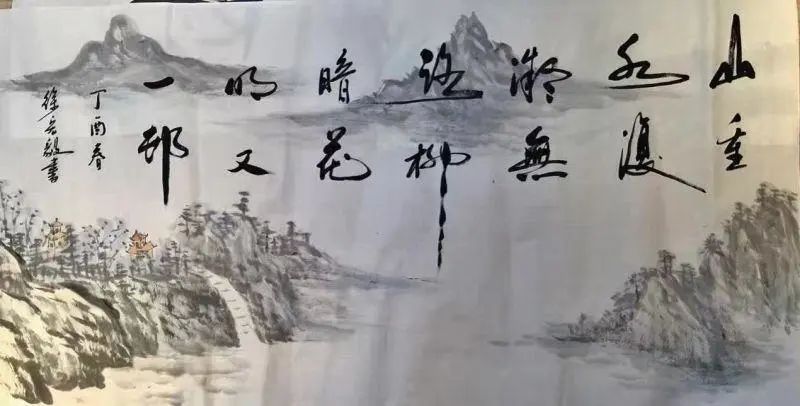 山重
水復
疑無
路柳
暗花
明又
一邨
丁酉春
徐毅書